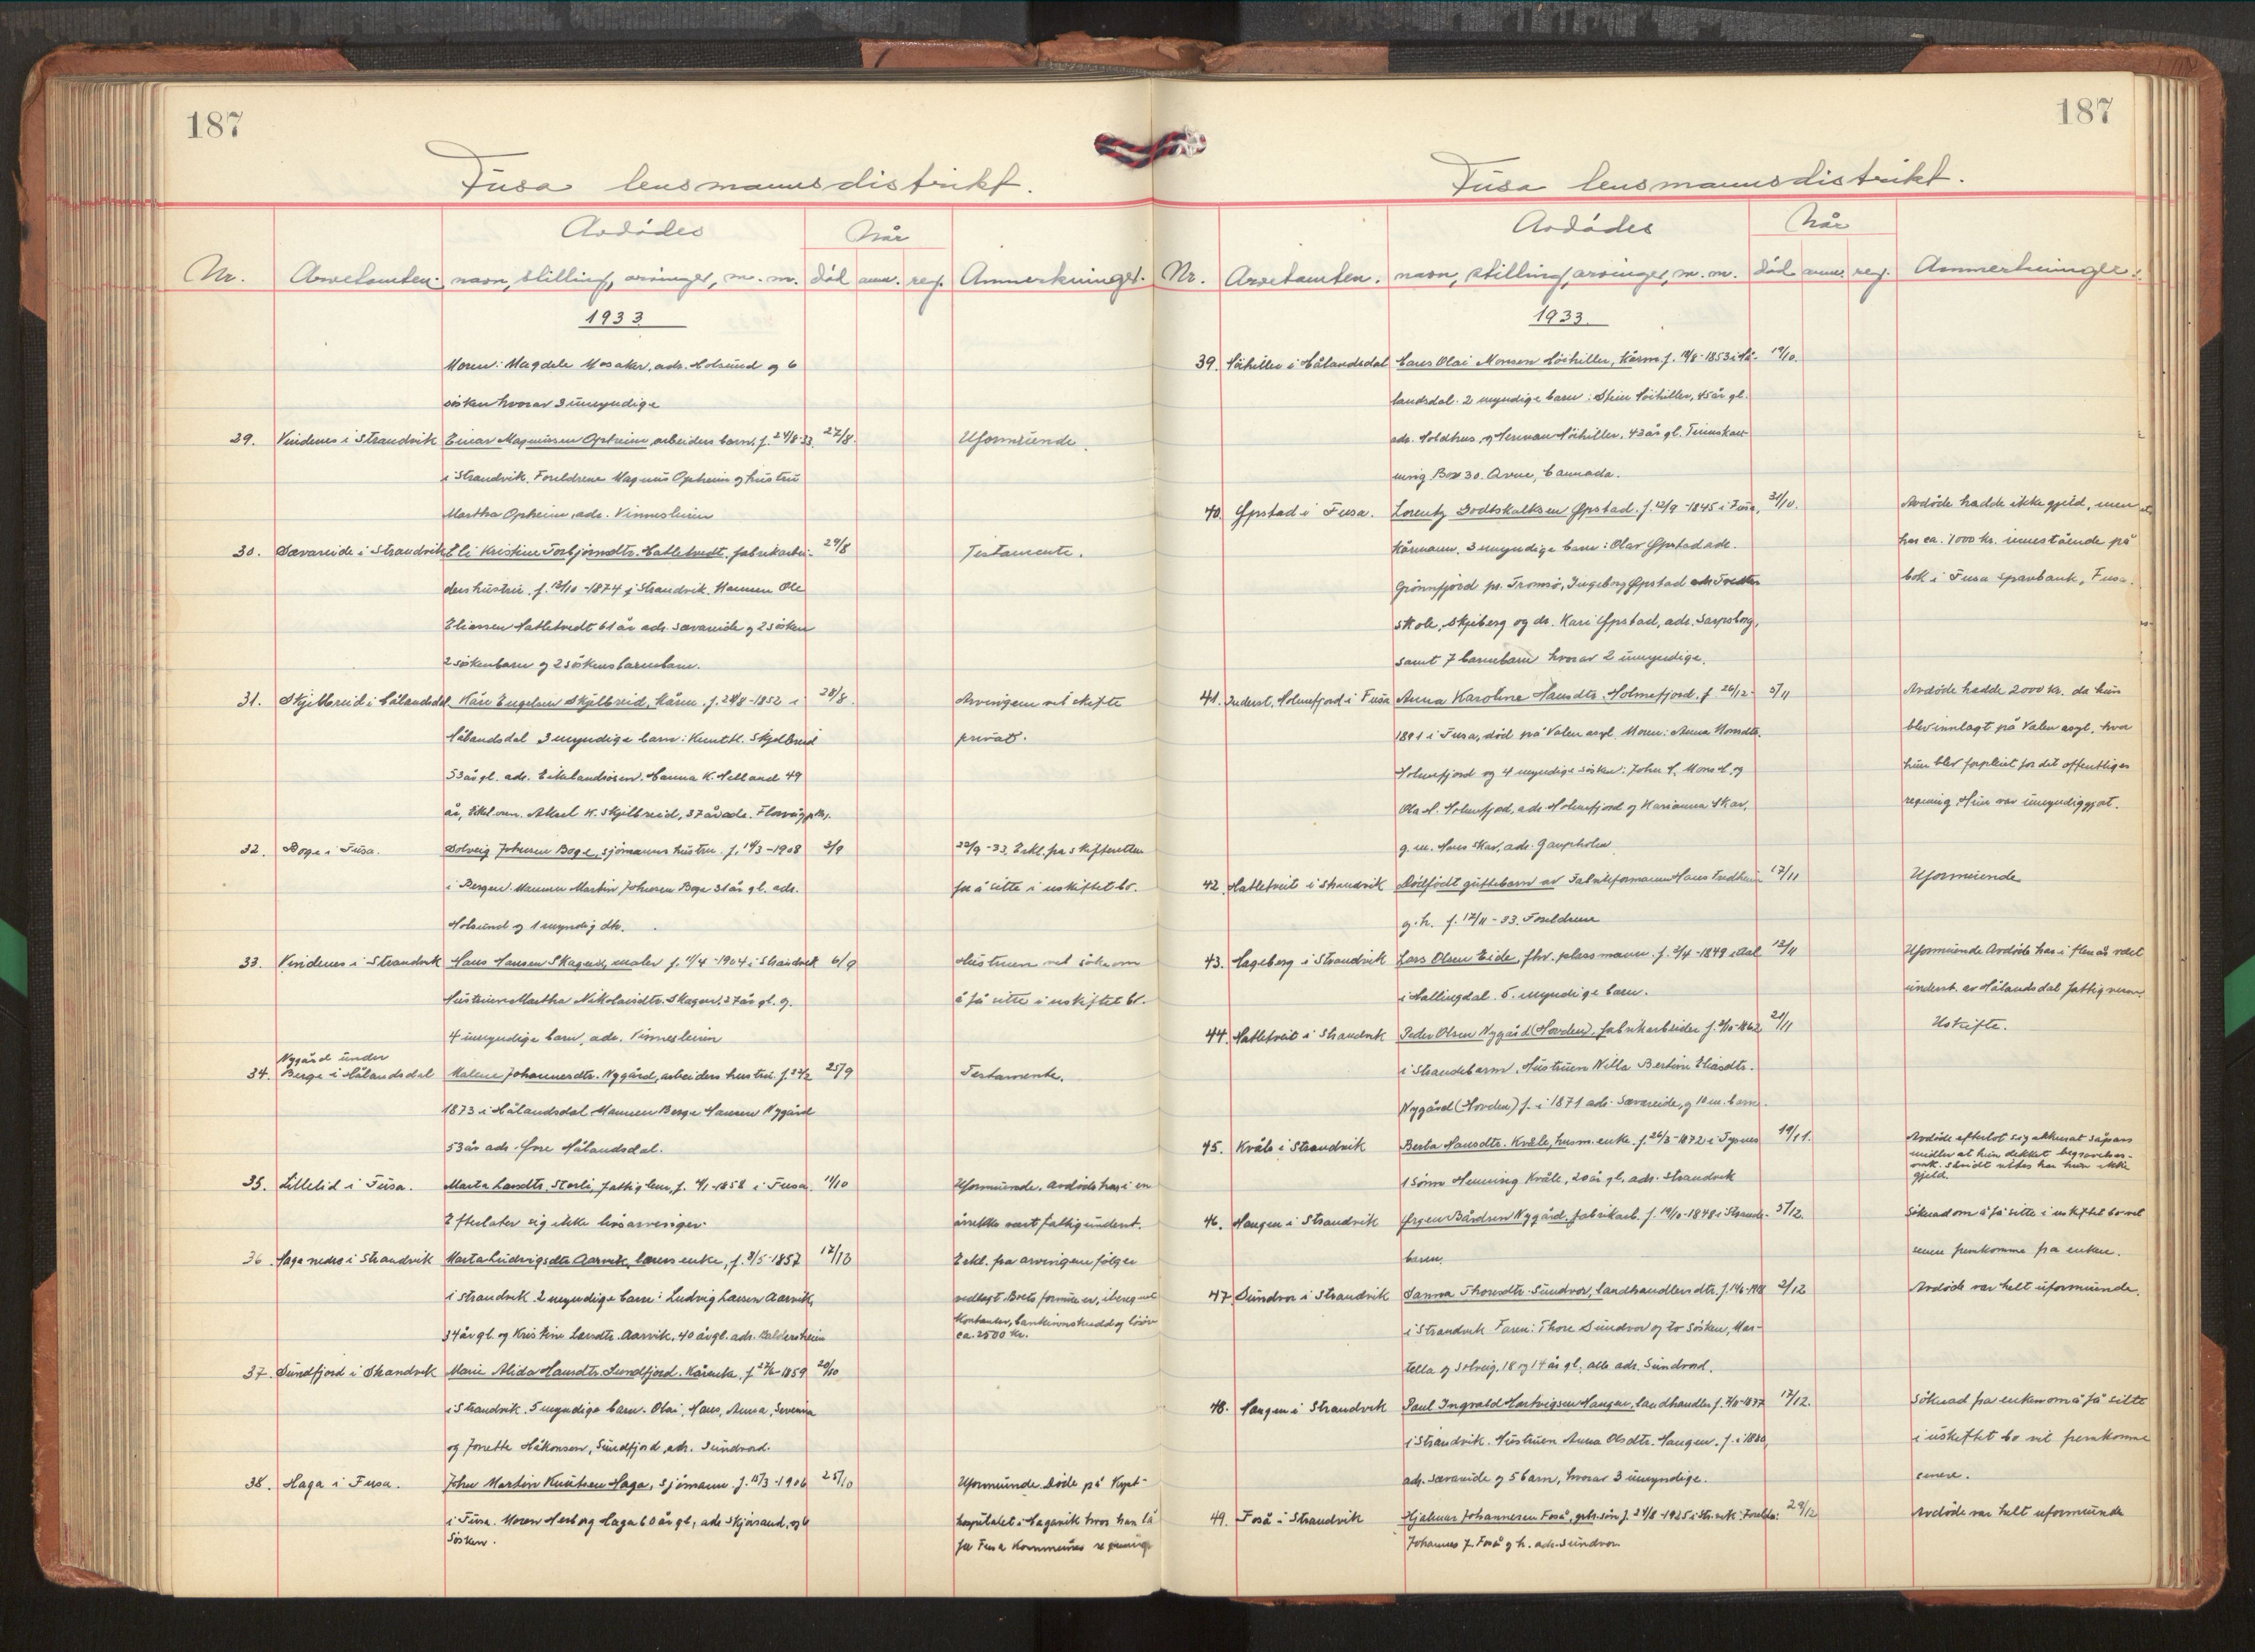 187
Fusa lensmannsdistrikt.
Avdødes
Når
Nr. Arvetomten. navn, stilling, arvinger, m. m. død anm. reg. Anmerkninger.
1933
Moren: Magdele Mosaker, adr. Holsund og 6
søsken hvorav 3 umyndige
29. Vindenes i Strandvik Einar Magnussen Opheim, arbeiders barn, f. 24/8-33 27/8. Uformuende.
i Strandvik. Foreldrene Magnus Opheim og hustru
Martha Opheim, adr. Vinnesleiren
30. Sævareide i Strandvik Eli Kristine Torbjørnsdtr. Hatletvedt, fabrikkarbei- 29/8 Testamente.
ders hustru, f. 12/10-1874 i Strandvik. Mannen Ole
Eliassen Hatletvedt 61 år adr. Sævareide og 2 søsken
2 søskenbarn og 2 søskens barnebarn.
31. Skjelbreid i Hålandsdal Kåre Engelsen Skjelbreid, kårm. f. 28/8-1852 i 28/8. Arvingene vil skifte
Hålandsdal 3 myndige barn: Knut K. Skjelbreid privat.
53 år gl. adr. Eikelandsosen. Hanna K. Helland 49
år, Eikel.osen. Aksel K. Skjelbreid, 37 år adr. Florvåg
32. Boge i Fusa. Solveig Johnsen Boge, sjømanns hustru f. 14/3-1908 3/9 22/9-33. Erkl. fra skifteretten
i Bergen. Mannen Martin Johnsen Boge 31 år gl. adr. for å sitte i uskiftet bo.
Holsund og 1 myndig dtr.
33. Vindenes i Strandvik Hans Hansen Skagen, maler f. 11/4-1904 i Strandvik 6/9 Hustruen vil søke om
Hustruen Martha Nikolaisdtr. Skagen, 27 år gl. og å få sitte i uskiftet bo.
4 umyndige barn, adr. Vinnesleiren
Nygård under
34. Berge i Hålandsdal Malene Johannesdtr. Nygård, arbeiders hustru f. 22/2 25/9 Testamente.
1873 i Hålandsdal Mannen Berge Hansen Nygård
53 år adr. Øvre Hålandsdal.
35. Lillelid i Fusa. Marta Larsdtr. Storli, fattiglem, f. 4/1-1858 i Fusa. 11/10 Uformuende. Avdøde har i en
Efterlater sig ikke livsarvinger. årrekke vært fattigunderst.
36. Haga nedre i Strandvik Marta Ludvigsdtr. Aarvik, lærers enke, f. 8/5-1857 12/10 Erkl. fra arvingene følger
i Strandvik 2 myndige barn: Ludvig Larsen Aarvik, vedlagt Boets formue er, iberegnet
34 år gl. og Kristine Larsdtr. Aarvik, 40 år gl. adr. Baldersheim Kontanter, bankinnskudd og løsøre ca. 2500 kr.
37. Sundfjord i Strandvik Marie Alida Hansdtr. Sundfjord. Kårenke, f. 27/6-1859 20/10
i Strandvik. 5 myndige barn. Olai, Hans, Anna, Severina
og Jonette Håkonsen, Sundfjord, adr. Sundvord.
38. Haga i Fusa. John Martin Knutsen Haga, sjømann. f. 15/3-1906 25/10 Uformuende. Døde på Kyst-
i Fusa. Moren Herborg Haga 60 år gl., adr. Skjørsand, og 6 hospitalet i Hagavik hvor han lå
Søsken. for Fusa Kommunes regning
187
Fusa lensmannsdistrikt.
Avdødes
Når
Nr. Arvetomten. navn, stilling, arvinger, m. m. død anm. reg. Anmerkninger.
1933.
39. Høihiller i Hålandsdal Hans Olai Monsen Høihiller, Kårm. f. 14/8-1853 i Hå- 19/10.
landsdal. 2 myndige barn: Stein Høihiller, 45 år gl.
adr. Holdhus, og Herman Høihiller, 43 år gl.
Box 30. Cannada.
40. Øpstad i Fusa. Lorentz Godtskalksen Øpstad. f. 12/9-1845 i Fusa, 30/10. Avdøde hadde ikke gjeld, men
Kårmann. 3 myndige barn: Olav Øpstad adr. har ca. 1000 kr. innestående på
Grønnfjord pr. Tromsø, Ingeborg Øpstad adr. bok i Fusa sparebank, Fusa.
skole, Skjeberg og dr. Kari Øpstad, adr. Sarpsborg,
samt 7 barnebarn hvorav 2 umyndige.
41. Inderst. Holmefjord i Fusa Anna Karoline Hansdtr. Holmefjord. f. 26/12- 5/11 Avdøde hadde 2000 kr. da hun
1891 i Fusa, død på Valen asyl. Moren: Anna Monsdtr. blev innlagt på Valen asyl, hvor
Holmefjord og 4 myndige søsken: John H. Mons H. og hun blev forpleiet for det offentliges
Ola H. Holmefjord, adr. Holmefjord og Marianna Skar, regning. Hun var umyndiggjort.
g. m. Hans Skar, adr. Gaupholm
42. Hatletveit i Strandvik Dødfødt guttebarn av Fabrikformann Hans Tvedheim 17/11 Uformuende
g. h. f. 17/11-33. Foreldrene
43. Hageberg i Strandvik Lars Olsen Eide, fhv. plassmann. f. 3/4-1849 i Aal 12/11 Uformuende Avdøde har i flere år vært
i Hallingdal. 5. myndige barn. underst. av Hålandsdal fattigvesen.
44. Hatletveit i Strandvik Peder Olsen Nygård (Hovden), fabrikarbeider f. 9/10-1862 21/11 Uskifte.
i Strandebarm. Hustruen Nilla Bertine Eliasdtr.
Nygård (Hovden) f. i 1871 adr. Sævareide, og 10 m. barn.
45. Kvåle i Strandvik Berta Hansdtr. Kvåle, husm. enke. f. 26/3-1872 i Tysnes 19/11. Avdøde efterlot sig akkurat såpass
midler at hun dekket begravelses-
omk. Såvidt vites har hun ikke
gjeld.
1 Sønn Henning Kvåle, 20 år gl. adr. Strandvik
46. Haugen i Strandvik Ørjen Bårdsen Nygård, fabrikarb. f. 14/10-1848 i Strande- 5/12. Søknad om å få sitte i uskiftet bo vil
barm. senere fremkomme fra enken.
47. Sundvor i Strandvik Sanna Thoresdtr. Sundvor, landhandlers dtr. f. 14/6-1918 2/12 Avdøde var helt uformuende.
i Strandvik Faren: Thore Sundvor og to søsken, Mar-
tella og Solveig, 18 og 14 år gl. alle adr. Sundvord.
48. Haugen i Strandvik Paul Ingvald Hartvigsen Haugen, landhandler f. 7/10-1877 17/12. Søknad fra enken om å få sitte
i Strandvik. Hustruen Anna Olsdtr. Haugen, f. i 1880, i uskiftet bo vil fremkomme
adr. Sævareide og 5 barn, hvorav 3 umyndige. senere.
49. Foså i Strandvik Hjalmar Johannesen Foså, grbr. søn f. 24/8-1925 i Str.vik. Foreldre: 29/12 Avdøde var helt uformuende
Johannes J. Foså og h. adr. Sundvor.